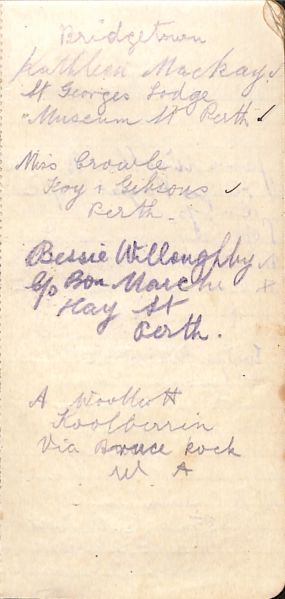 Bridgetown
Kathleen Mackay.
St Georges Lodge
"Museum St Perth ✓
Miss Crowle
Foy & Gibsons ✓
Perth.
Bessie Willoughby
C/o Bon Marche +
Hay St
Perth.
A Woollcott
Koolberrin
Via Bruce Rock
W A